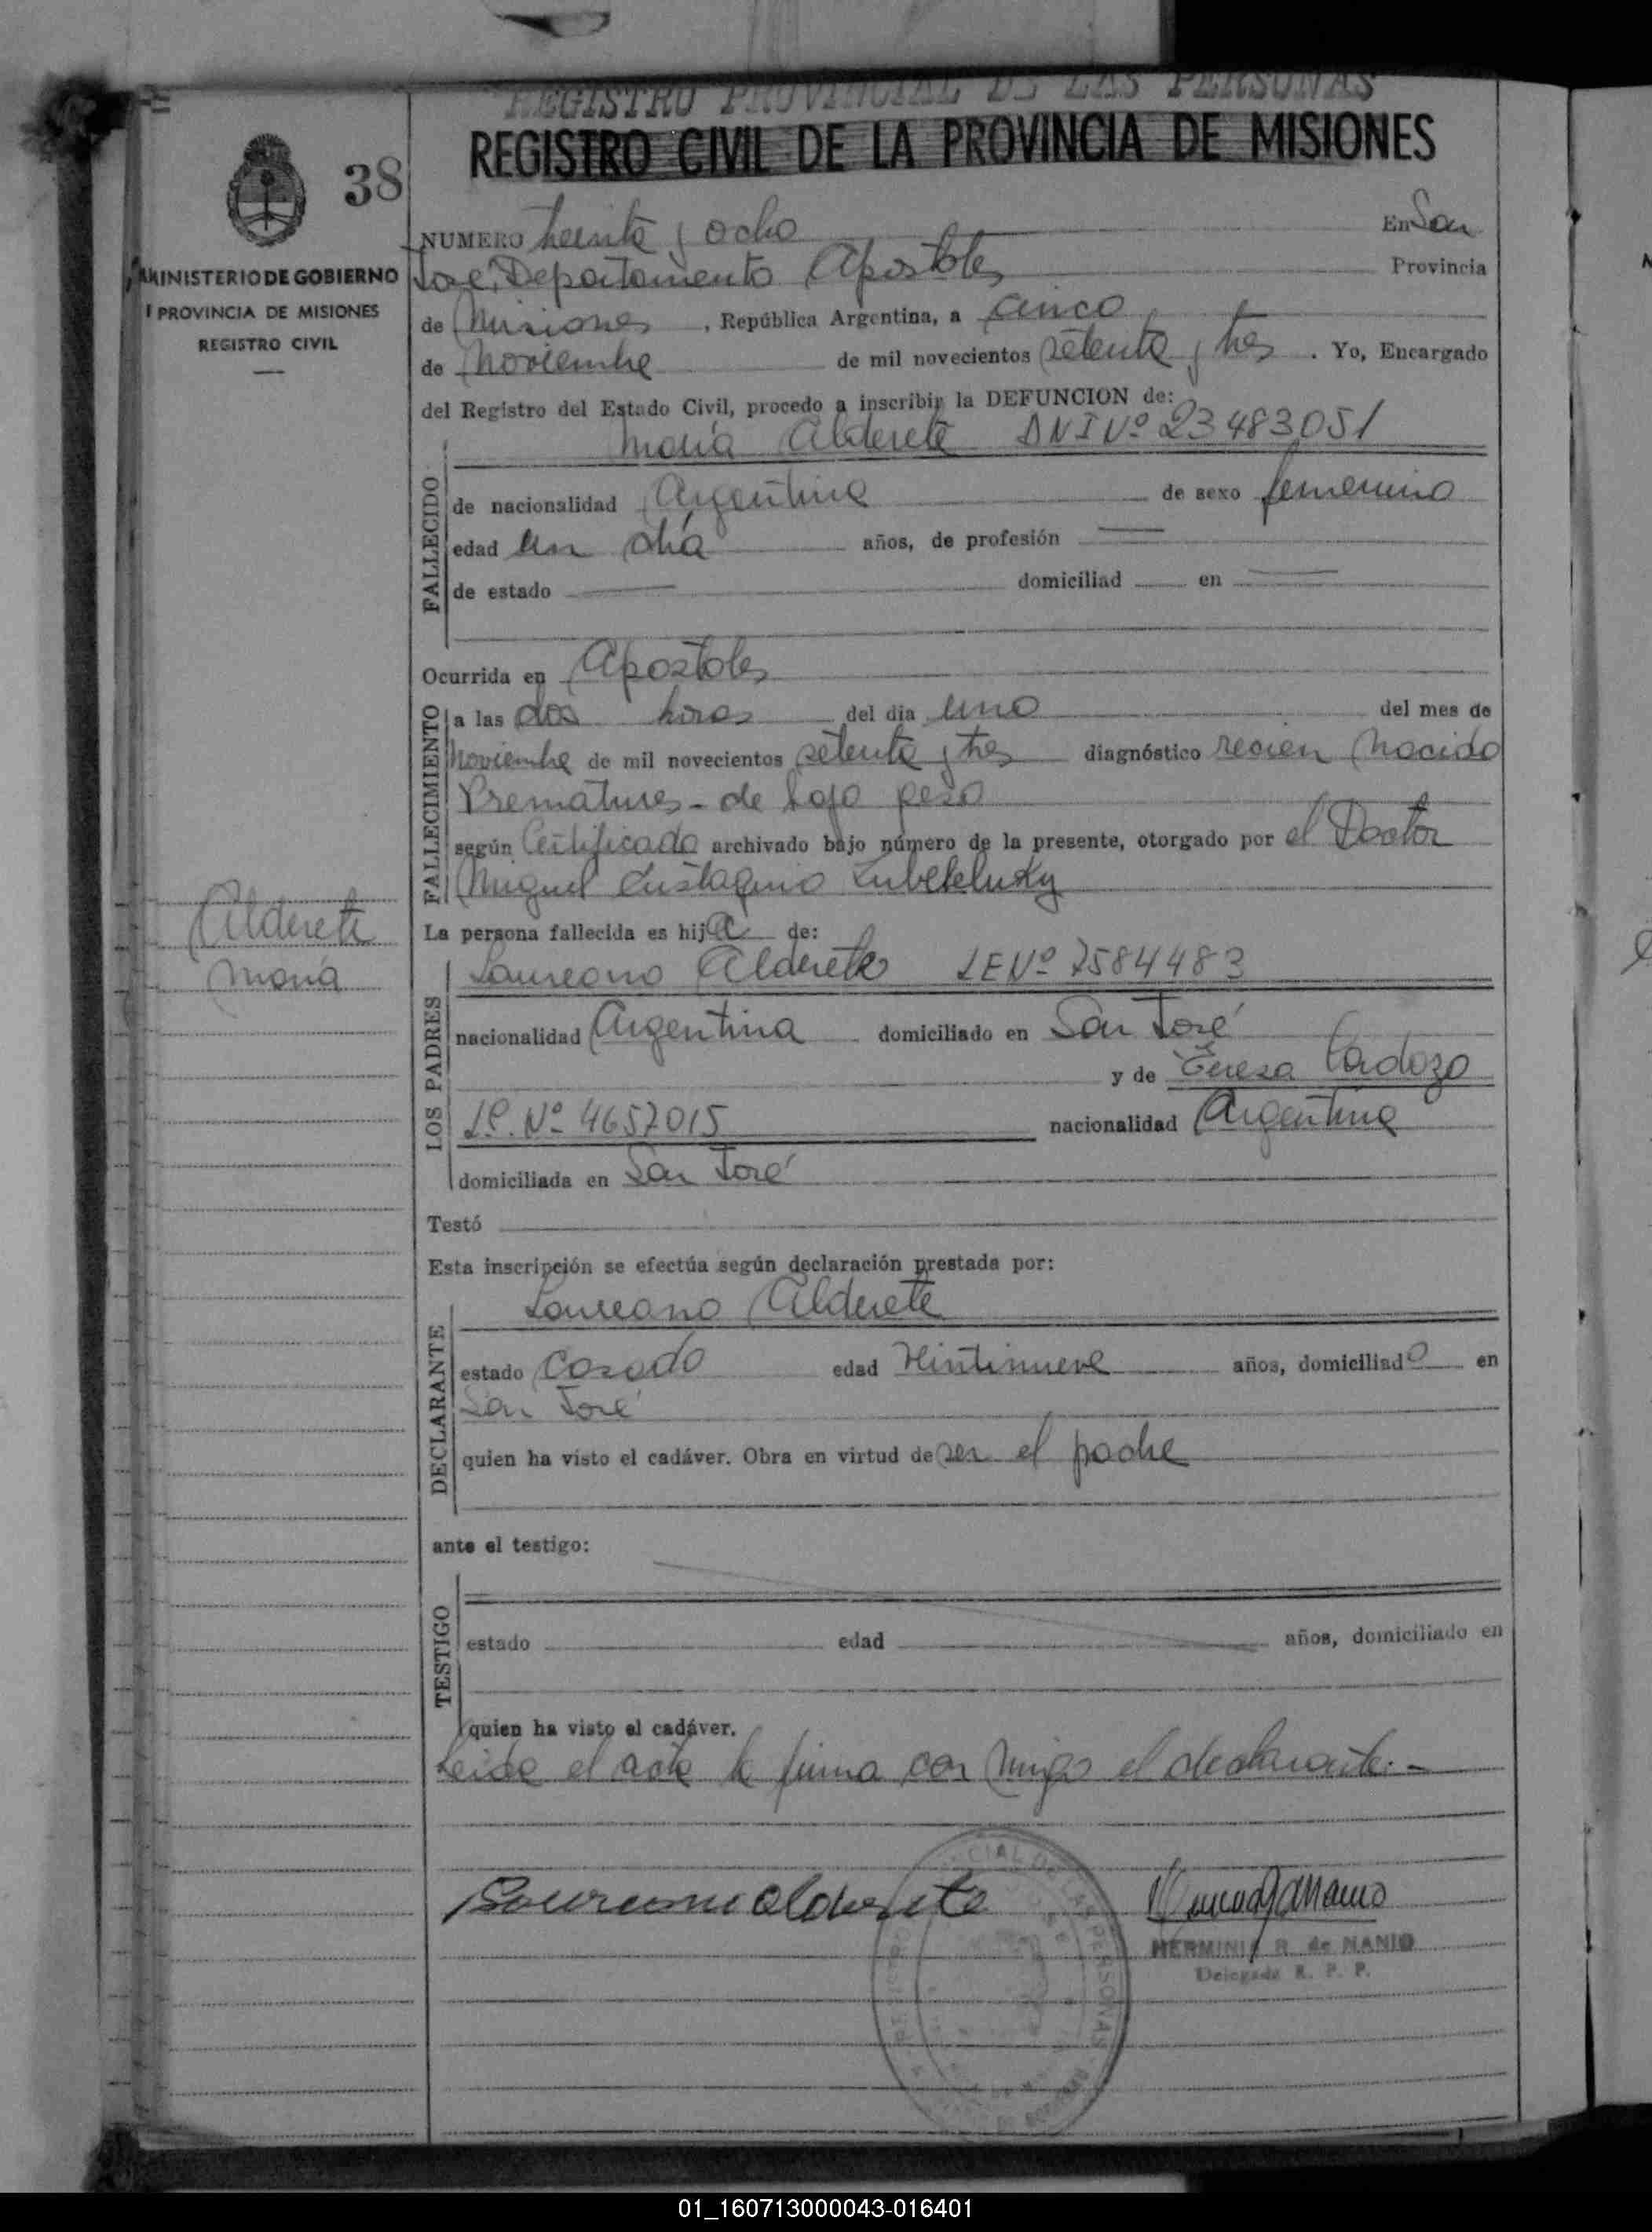 REGISTRO PROVINCIAL DE LAS PERSONAS
REGISTRO CIVIL DE LA PROVINCIA DE MISIONES
38
MINISTERIO DE GOBIERNO
PROVINCIA DE MISIONES
REGISTRO CIVIL
NUMERO treinta y ocho En San
José, Departamento Apostoles Provincia
de Misiones, República Argentina, a cinco
de Noviembre de mil novecientos setenta y tres. Yo, Encargado
del Registro del Estado Civil, procedo a inscribir la DEFUNCION de:
María Alderete DNI Nº 23483051
FALLECIDO
de nacionalidad Argentina de sexo femenino
edad un día años, de profesión
de estado domiciliad en
Ocurrida en Apostoles
FALLECIMIENTO
a las dos horas del día uno del mes de
Noviembre de mil novecientos setenta y tres diagnóstico recien Nacido
Prematuro - de bajo peso
según Certificado archivado bajo número de la presente, otorgado por el Doctor
Miguel Eustaquio
La persona fallecida es hija de:
Alderete
María
LOS PADRES
Laureano Alderete LE Nº 7584483
nacionalidad Argentina domiciliado en San José
y de Teresa Cardozo
Nº 4657015 nacionalidad Argentina
domiciliada en San José
Testó
Esta inscripción se efectúa según declaración prestada por:
DECLARANTE
Laureano Alderete
estado Casado edad Vintinueve años, domiciliado en
San José
quien ha visto el cadáver. Obra en virtud de ser el padre
ante el testigo:
TESTIGO
estado edad años, domiciliado en
quien ha visto el cadáver.
Leida el acta la firma con migo el declarante.-
Laureano Alderete
HERMINIA R. de NANIO
Delegada R. P. P.
01_160713000043-016401